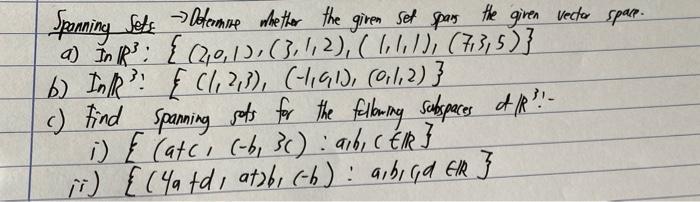 Spanning Sets → Determine whether the given set spans the given vector space.
a) In ℝ³: { (2,0,1), (3,1,2), (1,1,1), (7,3,5) }
b) In ℝ³: { (1,2,3), (-1,0,1), (0,1,2) }
c) Find spanning sets for the following subspaces of ℝ³:-
i) { (a+c, c-b, 3c) : a,b,c ∈ ℝ }
ii) { (4a+d, a+2b, c-b) : a,b,c,d ∈ ℝ }